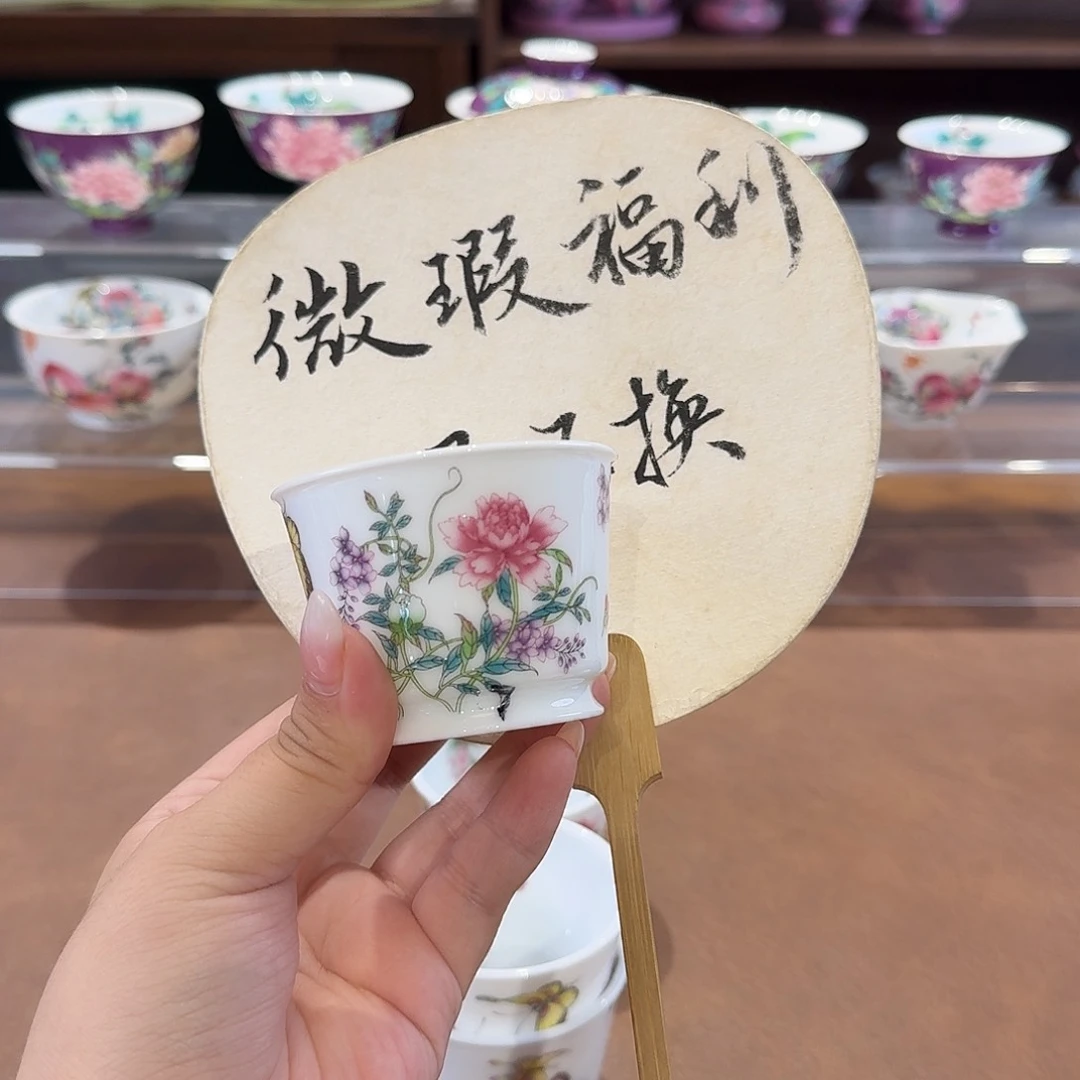 微瑕福利
换
7